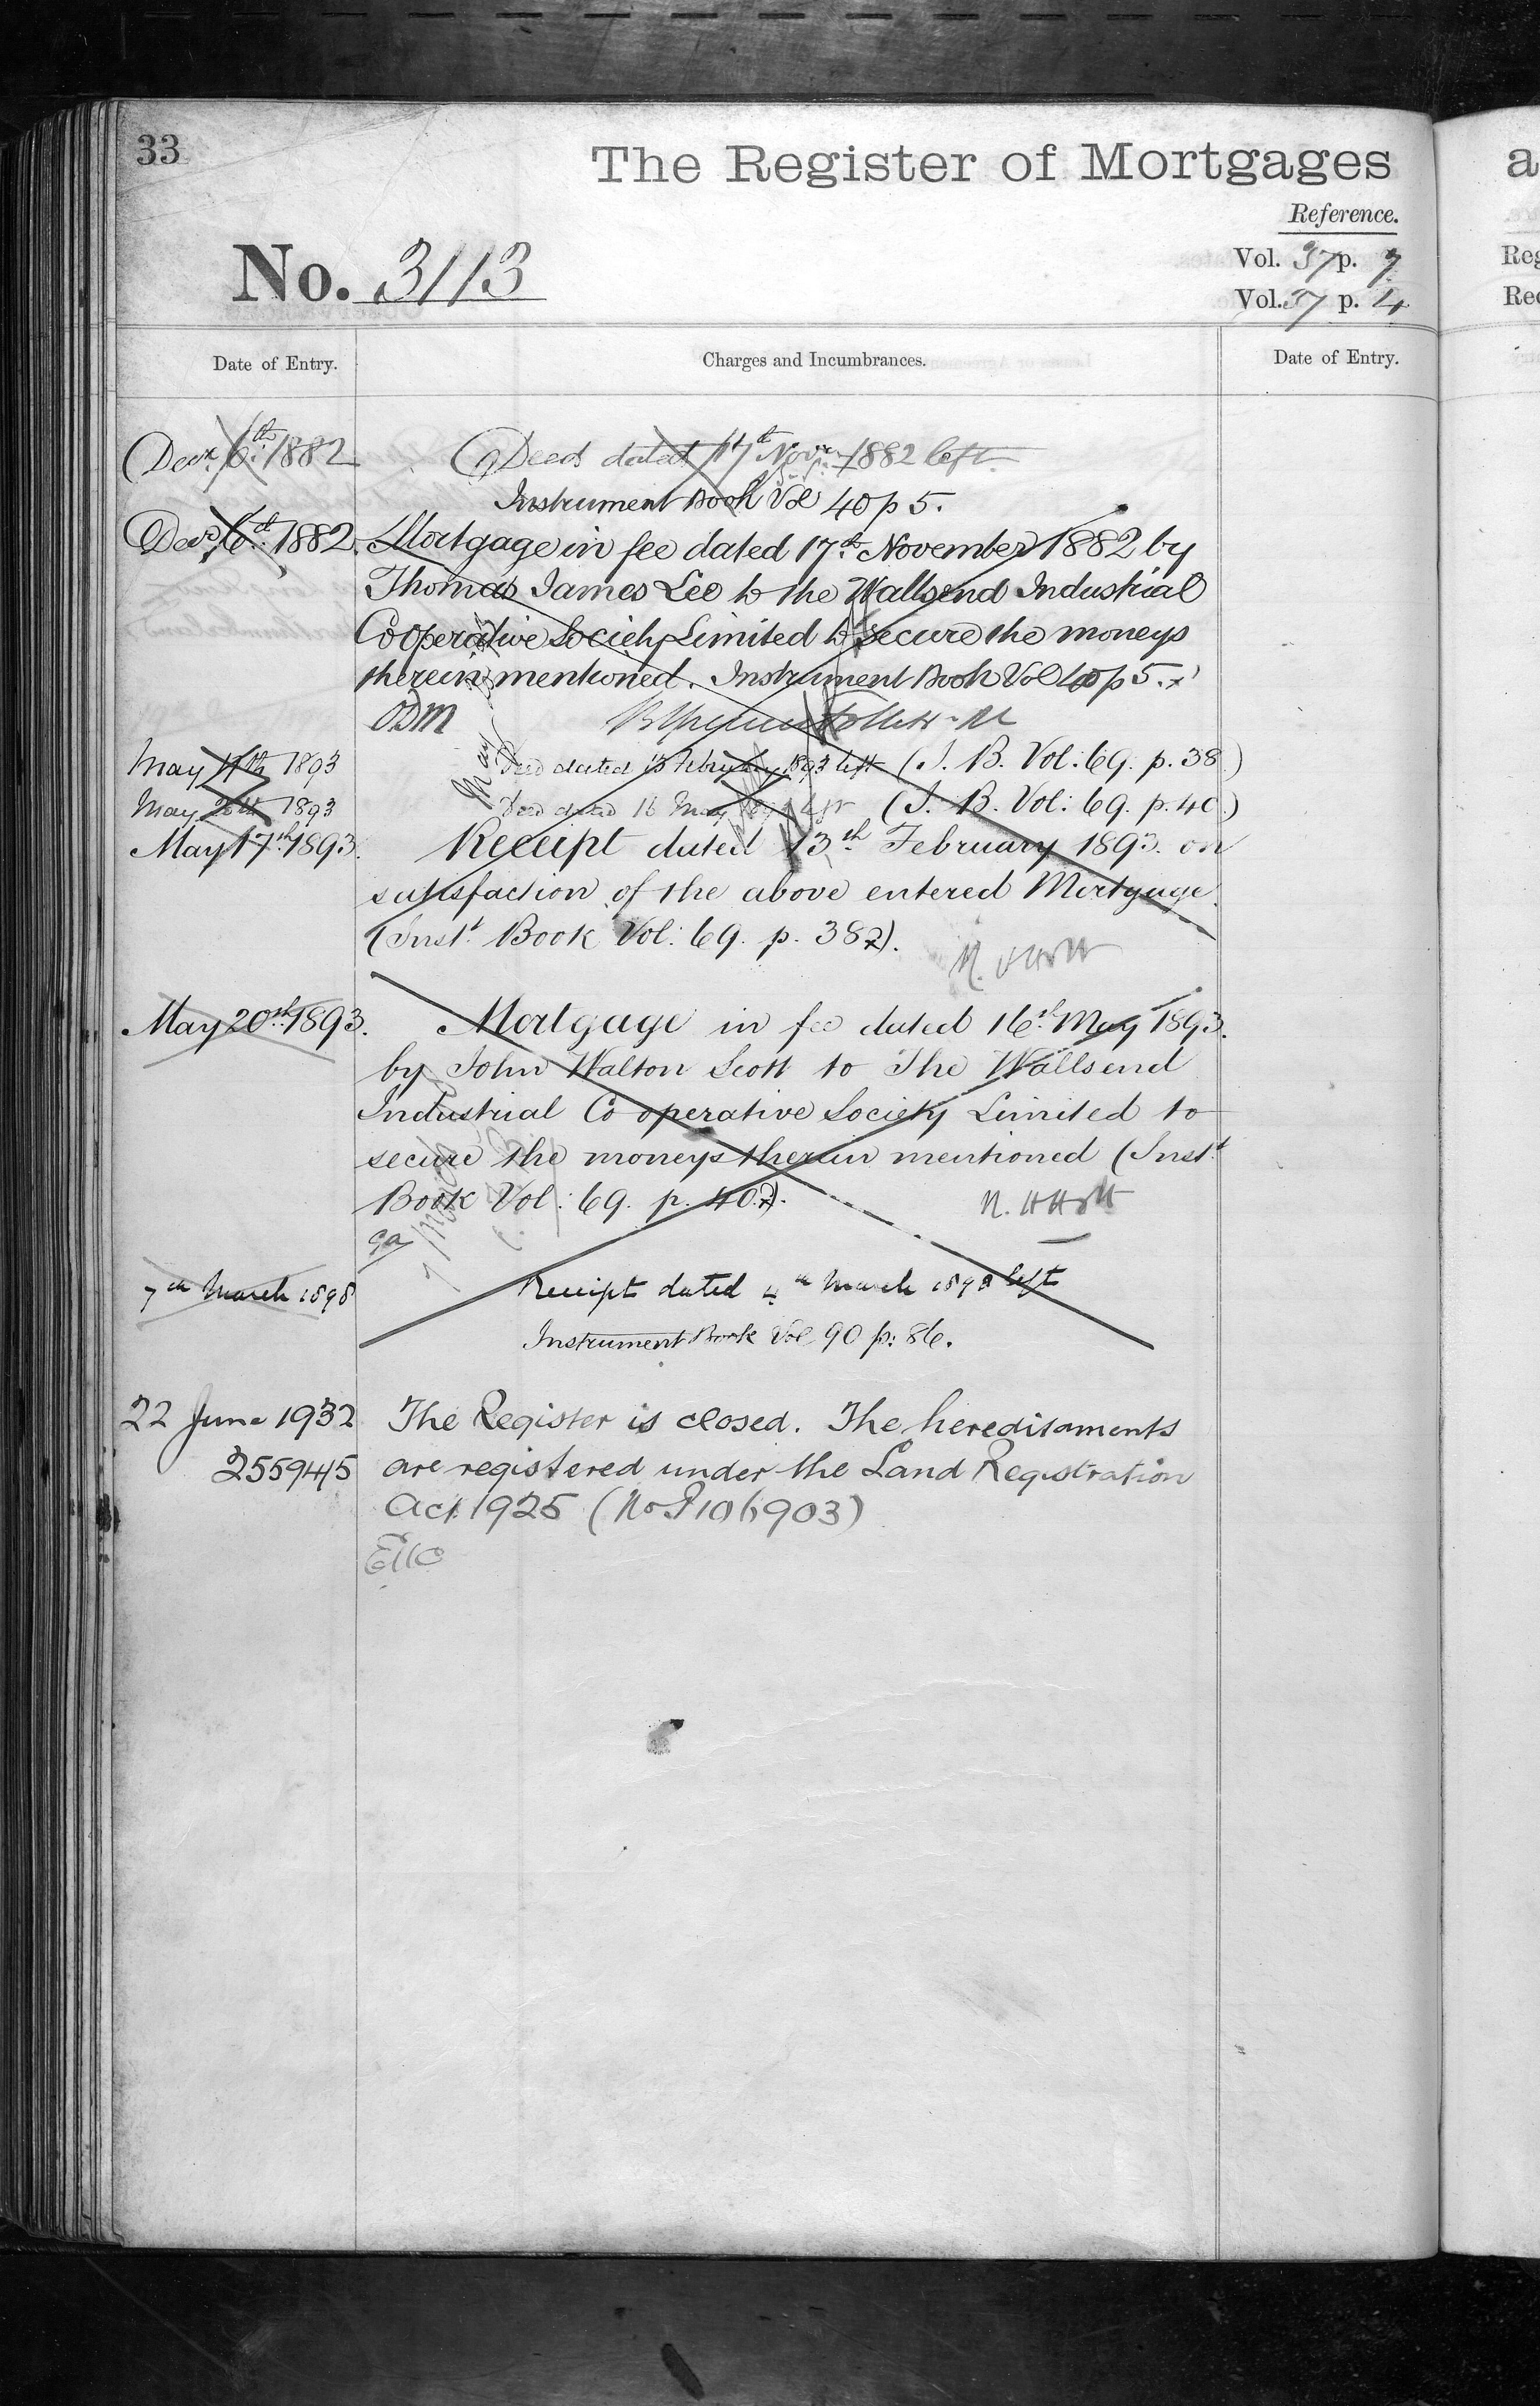 33
The Register of Mortgages
Reference.
No. 3113
Vol. 37 p. 7
Vol. 37 p. 4
Date of Entry.
Charges and Incumbrances.
Date of Entry.
Decr. 6th 1882
Deeds dated 17th Novr 1882 left.
Instrument Book Vol 40 p 5.
Decr 6th 1882.
Mortgage in fee dated 17th November 1882 by
Thomas James Lee to the Wallsend Industrial
Cooperative Society Limited to secure the moneys
therein mentioned. Instrument Book Vol 40 p 5.
ODM
May 17th 1893
Deed dated 13 February 1893 left (I. B. Vol: 69. p. 38)
May 20th 1893
Deed dated 16 May left (I. B. Vol: 69. p. 40.)
May 17th 1893.
Receipt dated 13th February 1893. on
satisfaction of the above entered Mortgage.
(Inst. Book Vol: 69. p. 38).
May 20th 1893.
Mortgage in fee dated 16th May 1893.
by John Walton Scott to The Wallsend
Industrial Co operative Society Limited to
secure the moneys therein mentioned (Inst.
Book Vol: 69. p. 40).
7th March 1898
Receipt dated 4th March 1898 left
Instrument Book Vol 90 p: 86.
22 June 1932
The Register is closed. The hereditaments
255945
are registered under the Land Registration
Act 1925 (No P106903)
a
Reg
Rec